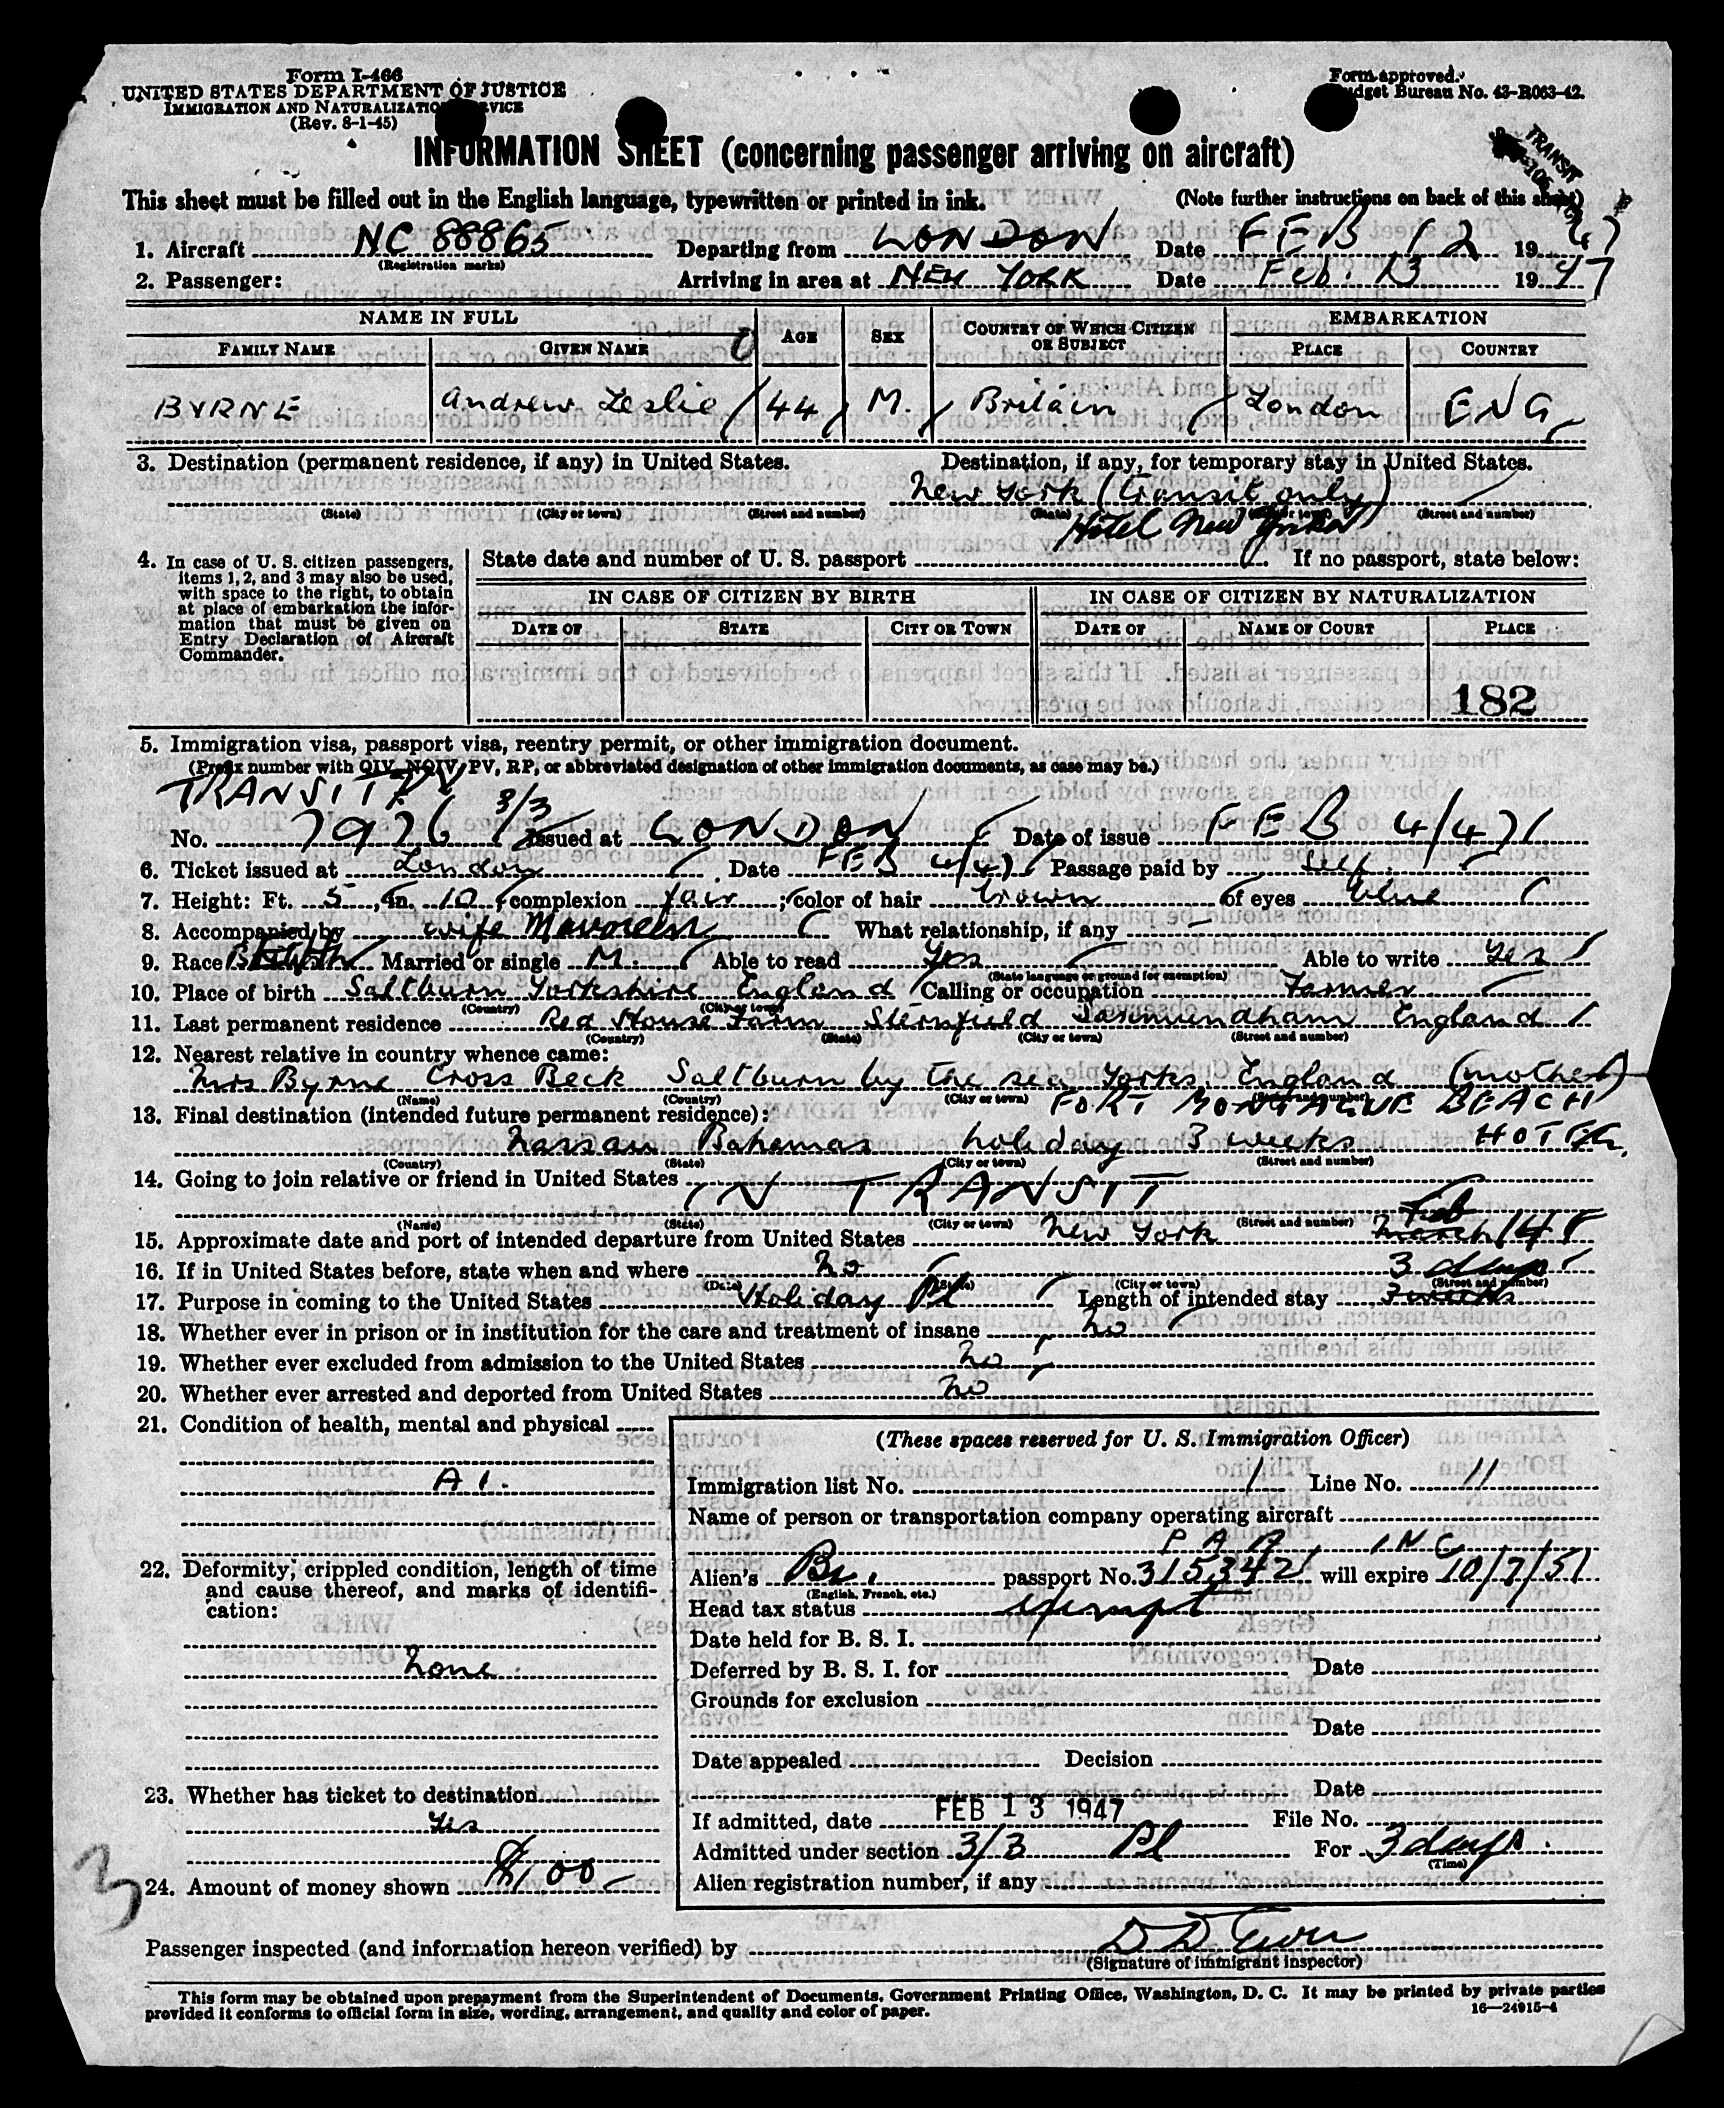 Form I-466
UNITED STATES DEPARTMENT OF JUSTICE
IMMIGRATION AND NATURALIZATION SERVICE
(Rev. 8-1-45)
Form approved.
Budget Bureau No. 43-R063-42.
INFORMATION SHEET (concerning passenger arriving on aircraft)
TRANSIT
This sheet must be filled out in the English language, typewritten or printed in ink. (Note further instructions on back of this sheet)
1. Aircraft NC 88865 Departing from LONDON Date FEB 12 1947
(Registration marks)
2. Passenger: Arriving in area at NEW YORK Date Feb. 13 1947
NAME IN FULL AGE SEX COUNTRY OF WHICH CITIZEN OR SUBJECT EMBARKATION
FAMILY NAME GIVEN NAME PLACE COUNTRY
BYRNE Andrew Leslie 44 M. Britain London ENG
3. Destination (permanent residence, if any) in United States. Destination, if any, for temporary stay in United States.
New York (transit only)
(State) (City or town) (Street and number) (State) (City or town) (Street and number)
Hotel New Yorker
4. In case of U. S. citizen passengers, items 1, 2, and 3 may also be used, with space to the right, to obtain at place of embarkation the information that must be given on Entry Declaration of Aircraft Commander.
State date and number of U. S. passport If no passport, state below:
IN CASE OF CITIZEN BY BIRTH IN CASE OF CITIZEN BY NATURALIZATION
DATE OF STATE CITY OR TOWN DATE OF NAME OF COURT PLACE
182
5. Immigration visa, passport visa, reentry permit, or other immigration document.
(Prefix number with QIV, NQIV, PV, RP, or abbreviated designation of other immigration documents, as case may be.)
TRANSIT PV 3/3
No. 7926 Issued at LONDON Date of issue FEB 4/47
6. Ticket issued at London Date FEB 4/47 Passage paid by self
7. Height: Ft. 5, in. 10; complexion fair; color of hair brown of eyes blue
8. Accompanied by wife What relationship, if any –
9. Race Married or single M. Able to read Yes Able to write Yes
(State language or ground for exemption)
10. Place of birth Saltburn Yorkshire England Calling or occupation Farmer
(Country) (City or town)
11. Last permanent residence Red House Farm Sternfield Saxmundham England
(Country) (State) (City or town) (Street and number)
12. Nearest relative in country whence came:
Mrs Byrne Cross Beck Saltburn by the sea Yorks. England (mother)
(Name) (Country) (City or town) (Street and number)
13. Final destination (intended future permanent residence): FORT MONTAGUE BEACH
Nassau Bahamas holiday 3 weeks HOTEL.
(Country) (State) (City or town) (Street and number)
14. Going to join relative or friend in United States IN TRANSIT
(Name) (State) (City or town) (Street and number)
Feb
15. Approximate date and port of intended departure from United States New York March 14
16. If in United States before, state when and where No 3 days
(Date) (State) (City or town) (Street and number)
17. Purpose in coming to the United States Holiday Pl Length of intended stay 3 weeks
18. Whether ever in prison or in institution for the care and treatment of insane no
19. Whether ever excluded from admission to the United States no
20. Whether ever arrested and deported from United States no
21. Condition of health, mental and physical
A1.
22. Deformity, crippled condition, length of time and cause thereof, and marks of identification:
None.
23. Whether has ticket to destination
Yes
24. Amount of money shown $100
3
(These spaces reserved for U. S. Immigration Officer)
Immigration list No. 1 Line No. 11
Name of person or transportation company operating aircraft
P A A INC
Alien's Br. passport No. 315342 will expire 10/7/51
(English, French, etc.)
Head tax status exempt
Date held for B. S. I.
Deferred by B. S. I. for Date
Grounds for exclusion
Date
Date appealed Decision
Date
If admitted, date FEB 13 1947 File No.
Admitted under section 3/3 Pl For 3 days.
(Time)
Alien registration number, if any
Passenger inspected (and information hereon verified) by
(Signature of immigrant inspector)
This form may be obtained upon prepayment from the Superintendent of Documents, Government Printing Office, Washington, D. C. It may be printed by private parties
provided it conforms to official form in size, wording, arrangement, and quality and color of paper. 16—24915-4